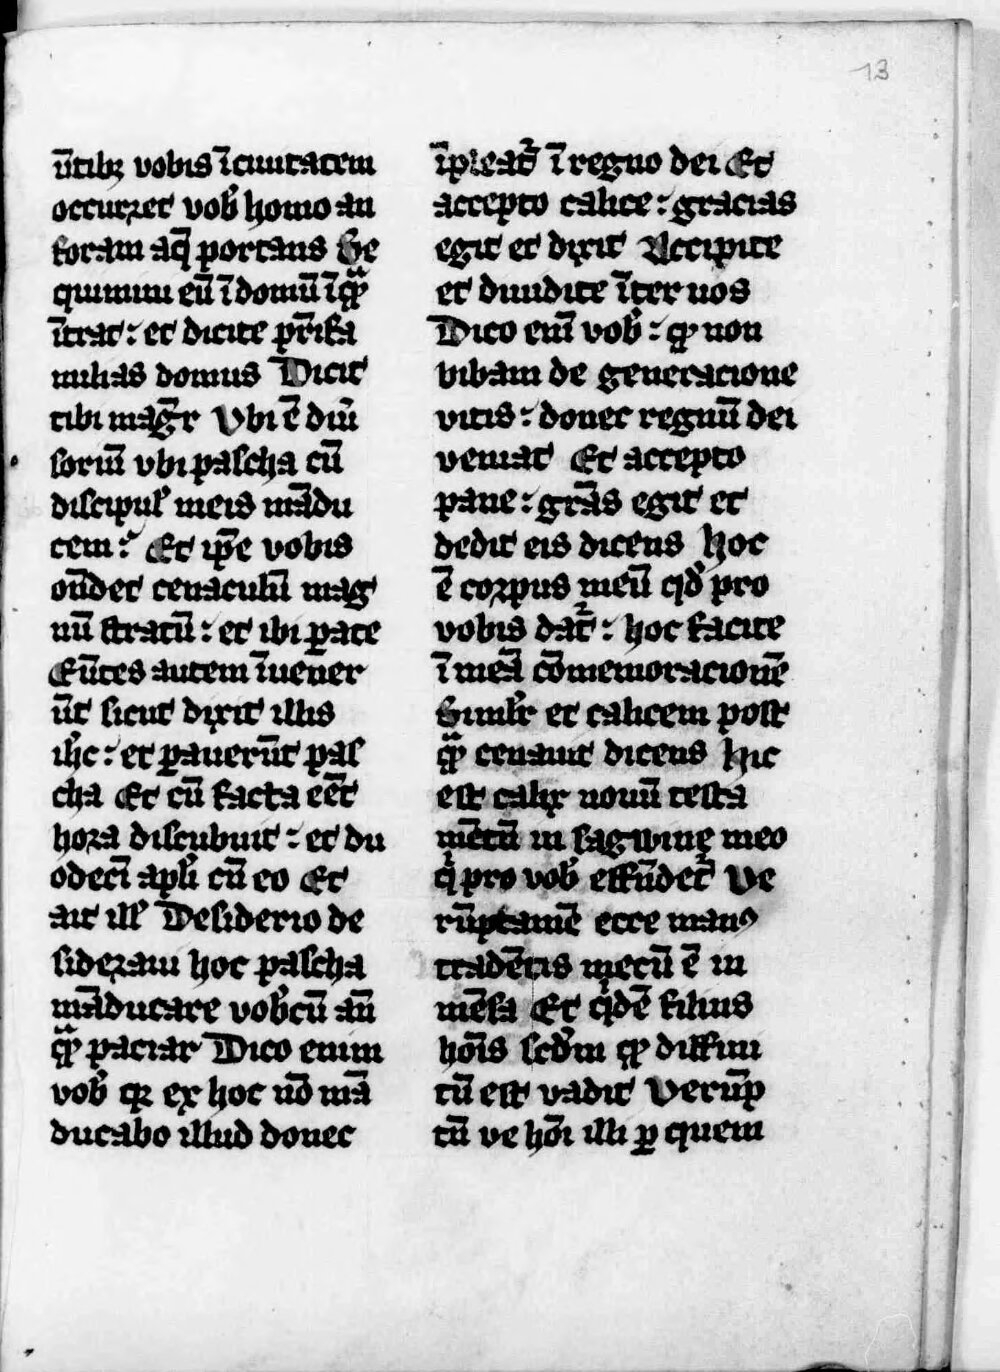 13
ūtibꝫ vobis ī ciuitatem
occurret vob̾ homo an
foram aq̄ portans Se
quimini eū ī domū ī qͣ
ītrat : et dicite pr̄ifa
milias domus Dicit
tibi magr̄ Vbi ē diu̾
soriū vbi pascha cū
discipul̾ meis mādu
cem : Et ip̄e vobis
on̄det cenaculū mag
nū stratū : et ibi ꝑate
Eūtes autem īuener
ūt sicut dixit illis
ih̄c : et ꝑauerūt pas
cha Et cū facta eēt
hora discubuit : et du
odeci̅ apl̄i cū eo Et
ait ill̾ Desiderio de
sideraui hoc pascha
māducare vob̾cū an̄
qͣꝫ paciar Dico enim
vob̾ qꝛ ex hoc nō mā
ducabo illud donec
īpleat᷑ ī regno dei Et
accepto calice : gracias
egit et dixit Accipite
et diuidite īter uos
Dico eni̅ vob̾ : qꝫ non
bibam de generacione
vitis : donec regnū dei
veniat Et accepto
pane : gr̄as egit et
dedit eis dicens Hoc
ē corpus meū qd̾ pro
vobis dat᷑ : hoc facite
ī meā cōmemoracionē
Simil̾r et calicem post
qͣꝫ cenauit dicens Hic
est calix nouū testa
mētū in sagwine meo
qͥ pro vob̾ effūdet᷑ Ve
rūptamē ecce manꝰ
tradētis mecū ē in
mēsa Et qͥdē filius
hoīs scd̾m qꝫ diffini
tū est vadit Verūp
tn̄ ve hoī illi ꝑ quem